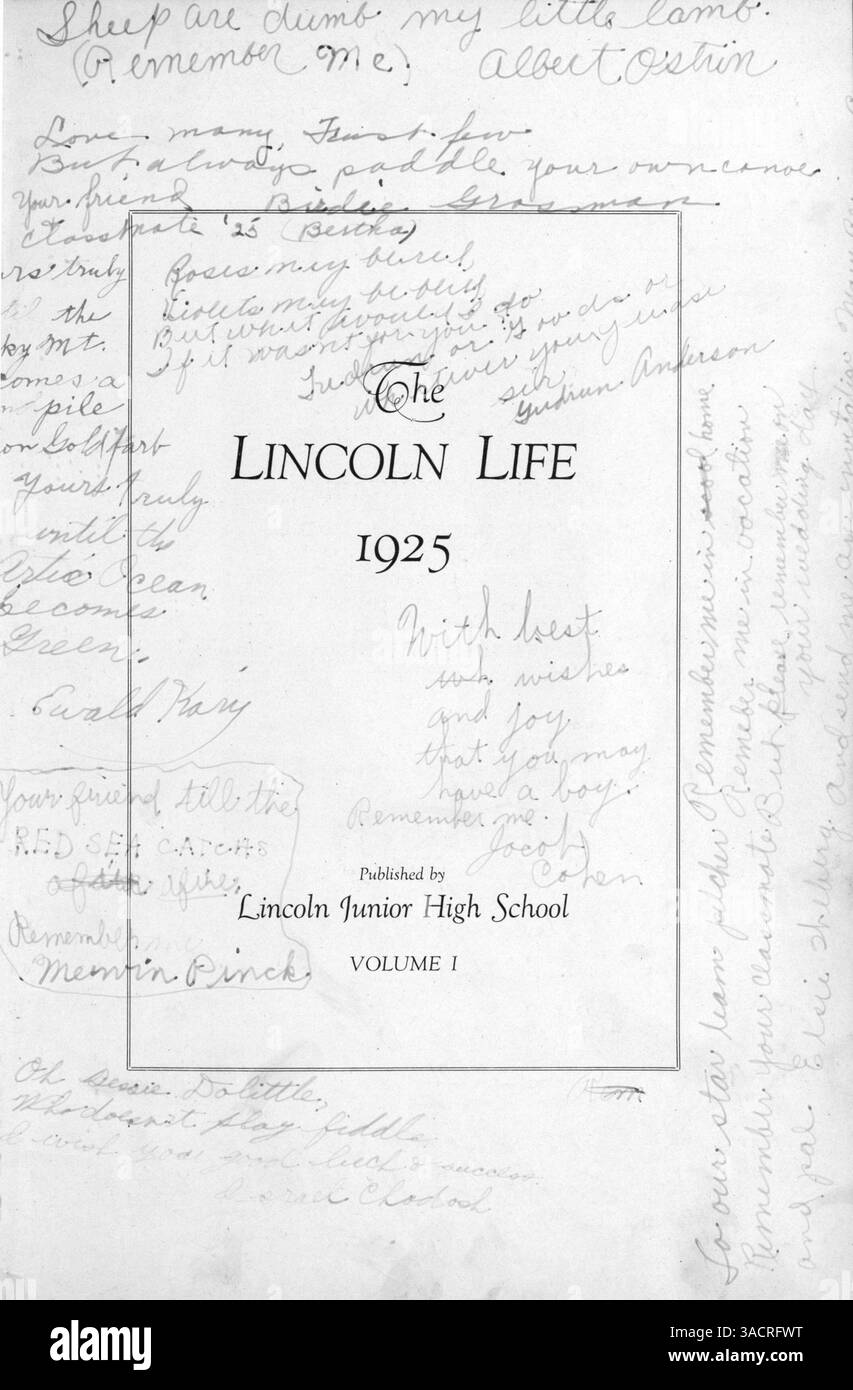 Sheep are dumb my little lamb.
(Remember Me) Albert Ostrin
Love many, Trust few
But always paddle your own canoe
Your friend Birdie Grossman
Classmate '25 (Bertha)
Roses may be red,
Violets may be blue
But what would I do
If it wasn't for you
Indians or Goods or
whatever you
sir
Gudrun Anderson
rs truly
the
ky Mt.
comes a
pile
on Goldfarb
Yours Truly
until the
Artic Ocean
becomes
Green.
Ewald Kary
The
LINCOLN LIFE
1925
With best
wishes
and joy
that you may
have a boy.
Remember me.
Jacob
Cohen
Your friend till the
RED SEA CATCHS
afire.
Remember me
Mervin Pinck
Published by
Lincoln Junior High School
VOLUME I
Oh Bessie Dolittle,
Who doesn't play fiddle
I wish you good luck & success
Israel Chodosh
To our star team pitcher Remember me in school home
Remember me in vacation
Remember your classmate But please remember me on
your wedding day
and pal Elsie Shebory And send me an invitation
alamy
Image ID: 3ACRFWT
www.alamy.com